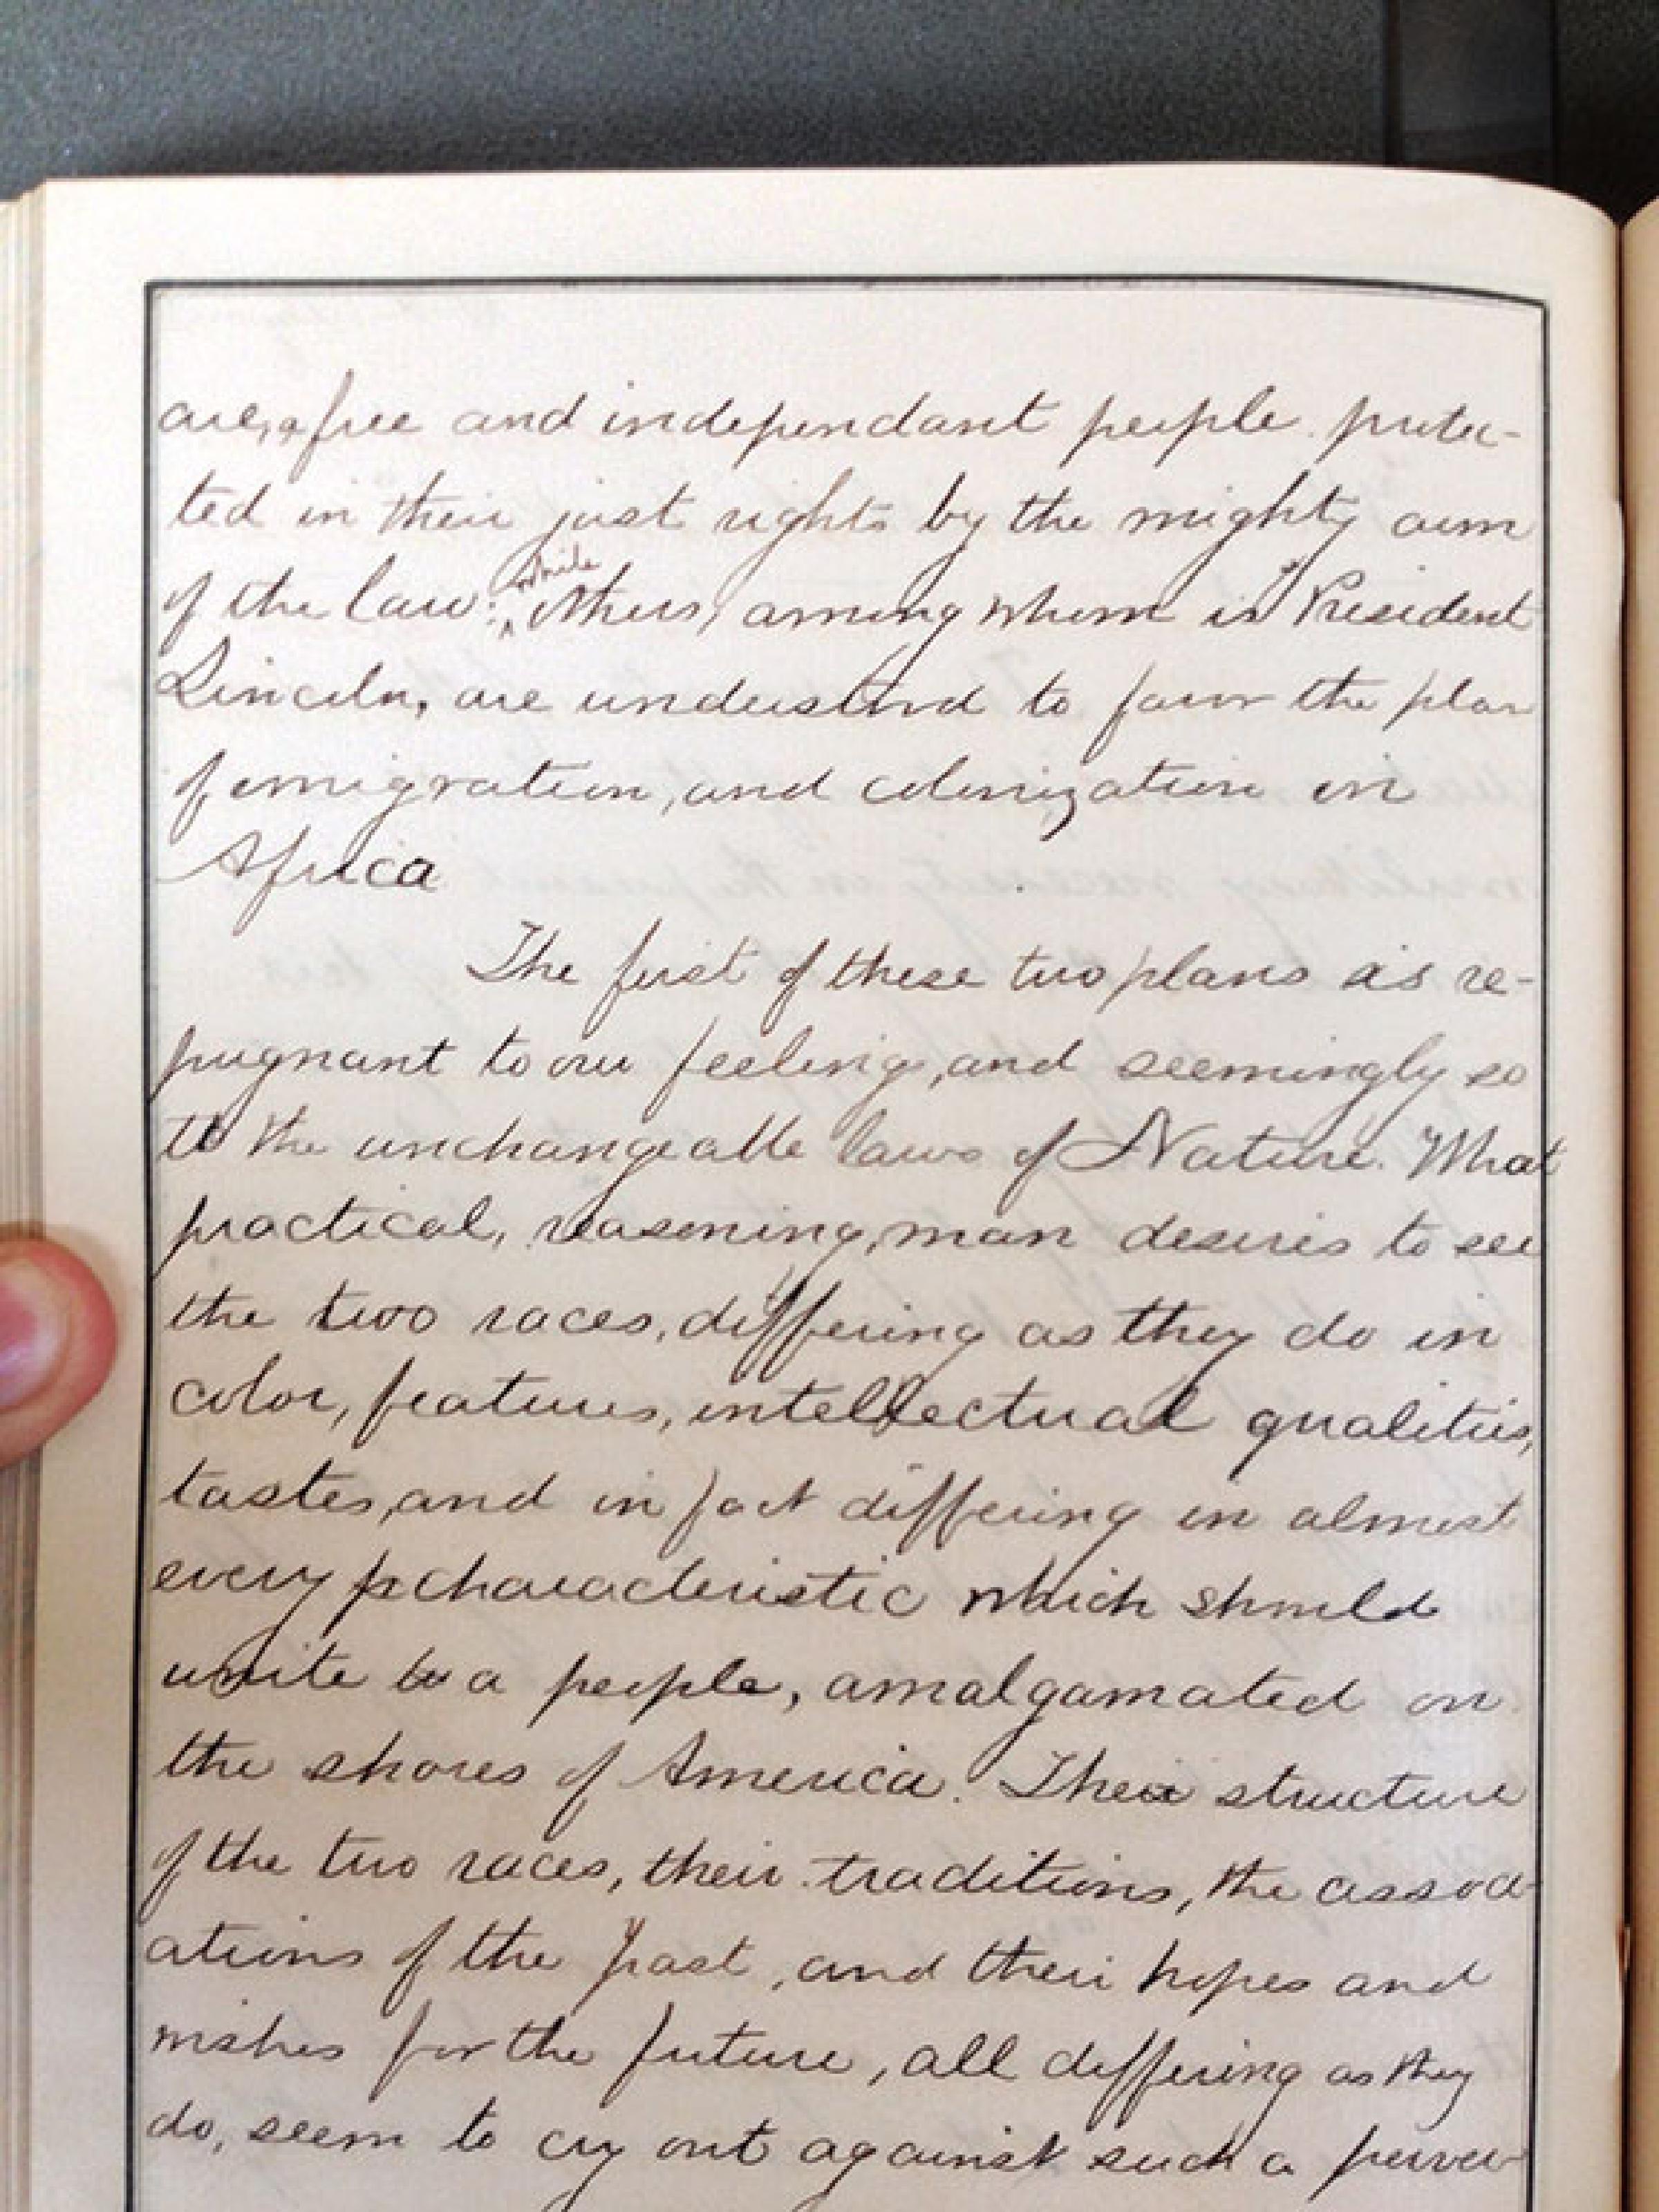 are, a free and independant people protec-
ted in their just rights by the mighty arm
of the law: while others, among whom is President
Lincoln, are understood to favor the plan
of emigration, and colonization in
Africa
The first of these two plans is re-
pugnant to our feelings, and seemingly so
to the unchangeable laws of Nature. What
practical, reasoning, man desires to see
the two races, differing as they do in
color, features, intellectual qualities,
tastes, and in fact differing in almost
every characteristic which should
unite a people, amalgamated on
the shores of America. The structure
of the two races, their traditions, the associ-
ations of the past, and their hopes and
wishes for the future, all differing as they
do, seem to cry out against such a perver-